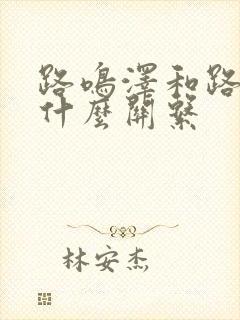 路鳴澤和路
什麼關繫
林安杰